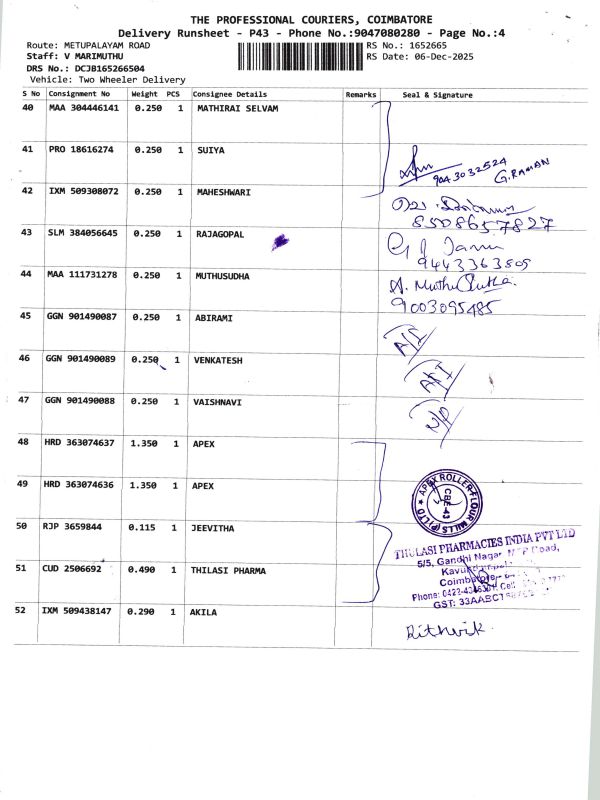 THE PROFESSIONAL COURIERS, COIMBATORE
Delivery Runsheet - P43 - Phone No.:9047080280 - Page No.:4
Route: METUPALAYAM ROAD
RS No.: 1652665
Staff: V MARIMUTHU
RS Date: 06-Dec-2025
DRS No.: DCJB165266504
Vehicle: Two Wheeler Delivery
S No Consignment No Weight PCS Consignee Details Remarks Seal & Signature
40 MAA 304446141 0.250 1 MATHIRAI SELVAM
41 PRO 18616274 0.250 1 SUIYA
9043032524
G.RAMAN
42 IXM 509308072 0.250 1 MAHESHWARI
8508657827
43 SLM 384056645 0.250 1 RAJAGOPAL
9443363809
44 MAA 111731278 0.250 1 MUTHUSUDHA
A. Muthu Sutha
9003095485
45 GGN 901490087 0.250 1 ABIRAMI
46 GGN 901490089 0.250 1 VENKATESH
47 GGN 901490088 0.250 1 VAISHNAVI
48 HRD 363074637 1.350 1 APEX
49 HRD 363074636 1.350 1 APEX
APEX ROLLER FLOUR MILLS (P) LTD
CBE-43
50 RJP 3659844 0.115 1 JEEVITHA
THULASI PHARMACIES INDIA PVT LTD
5/5, Gandhi Nagar, Road,
51 CUD 2506692 0.490 1 THILASI PHARMA
Coimbatore
Phone: 0422- Cell
GST: 33AABCT
52 IXM 509438147 0.290 1 AKILA
Rithvik